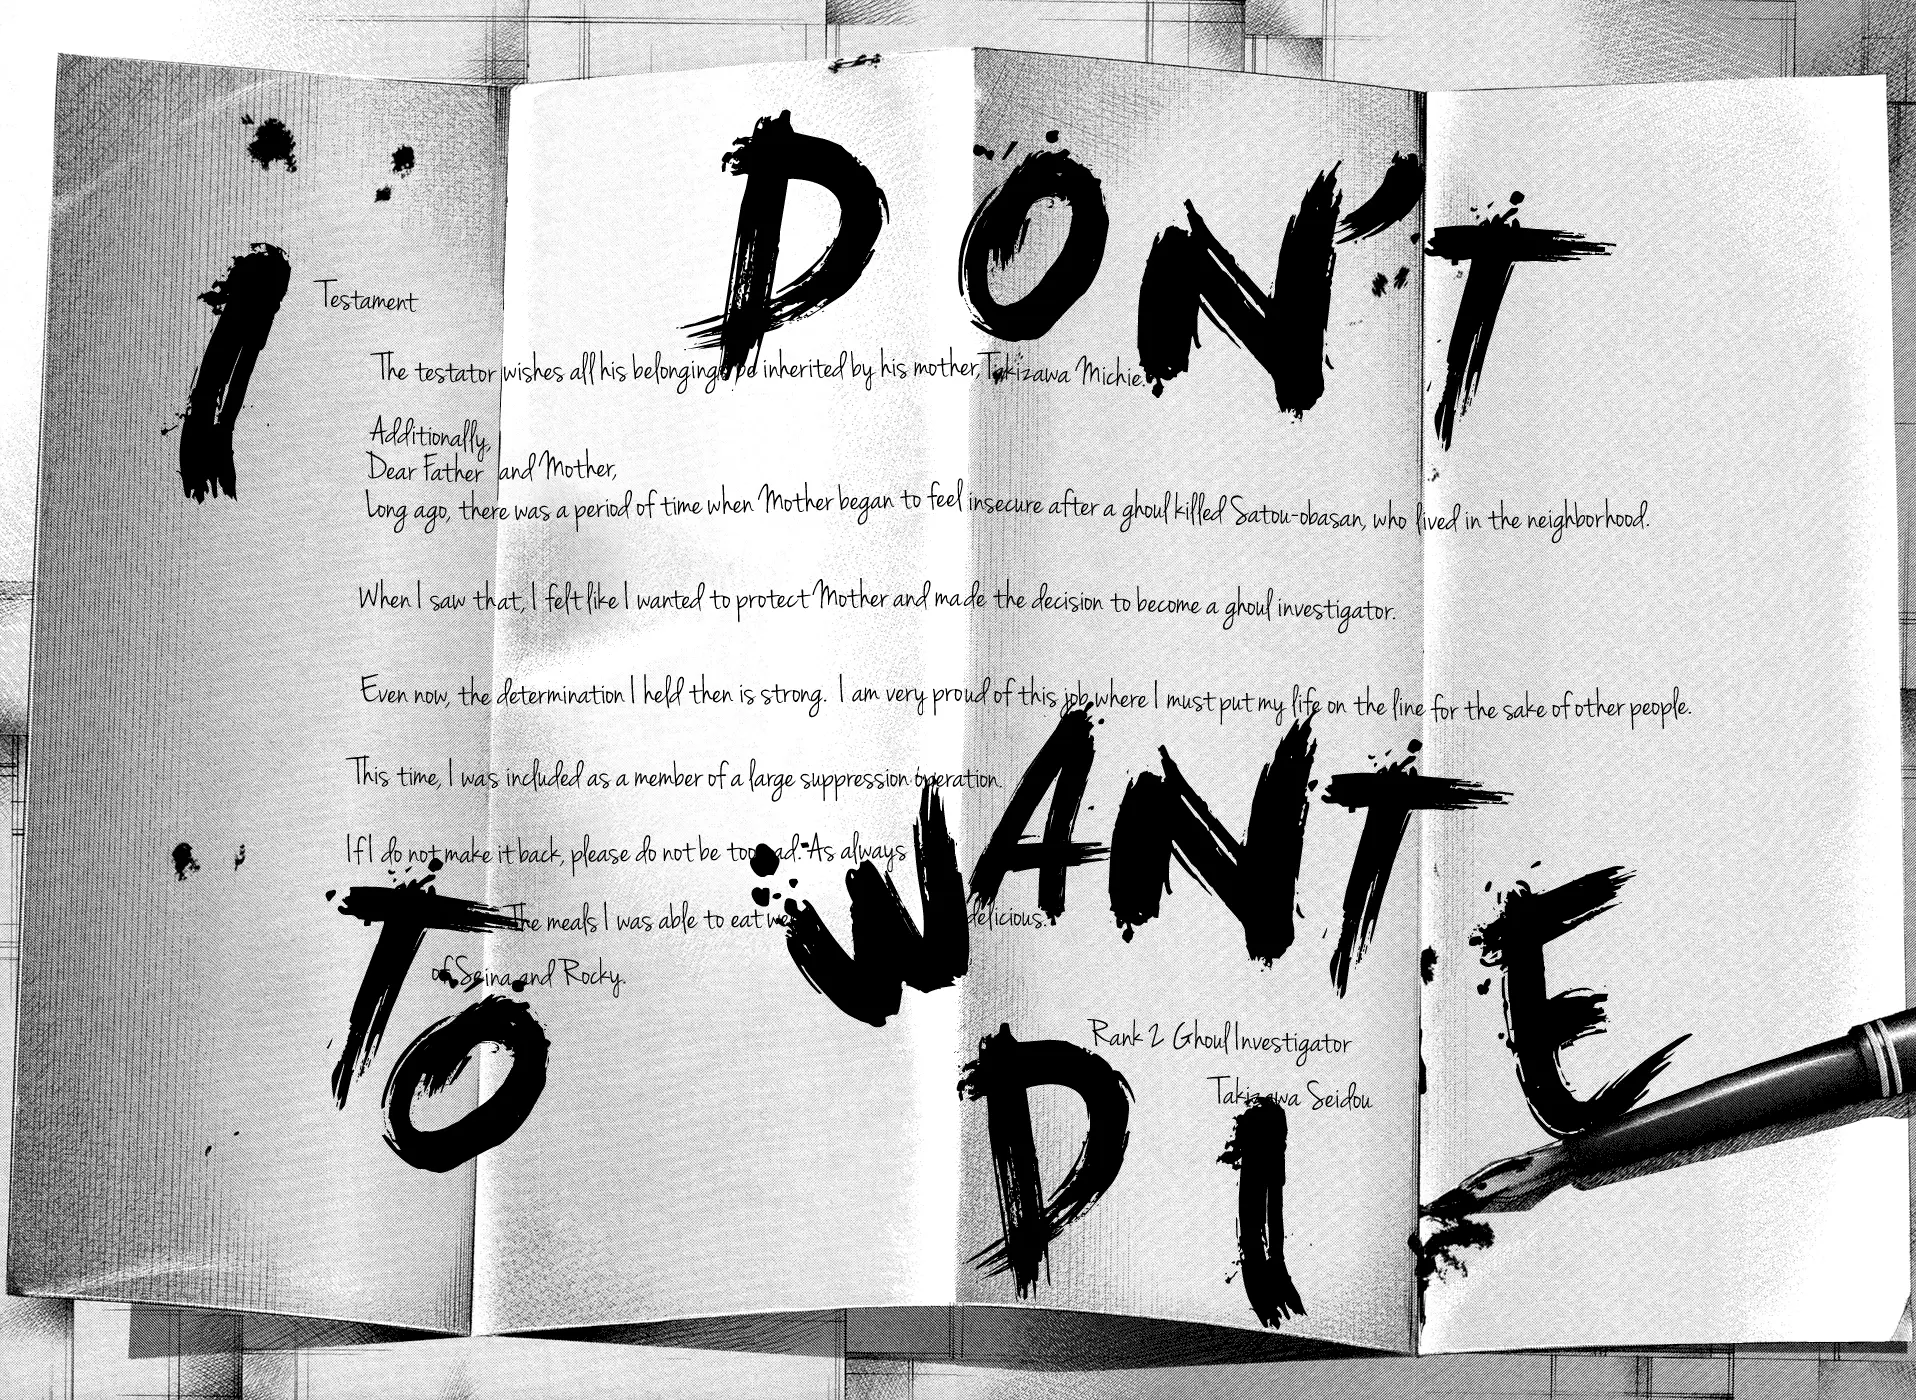 I DON'T
WANT
TO
DIE
Testament
The testator wishes all his belongings be inherited by his mother, Takizawa Michie.
Additionally,
Dear Father and Mother,
Long ago, there was a period of time when Mother began to feel insecure after a ghoul killed Satou-obasan, who lived in the neighborhood.
When I saw that, I felt like I wanted to protect Mother and made the decision to become a ghoul investigator.
Even now, the determination I held then is strong. I am very proud of this job where I must put my life on the line for the sake of other people.
This time, I was included as a member of a large suppression operation.
If I do not make it back, please do not be too sad. As always
The meals I was able to eat delicious.
of Seina and Rocky.
Rank 2 Ghoul Investigator
Takizawa Seidou